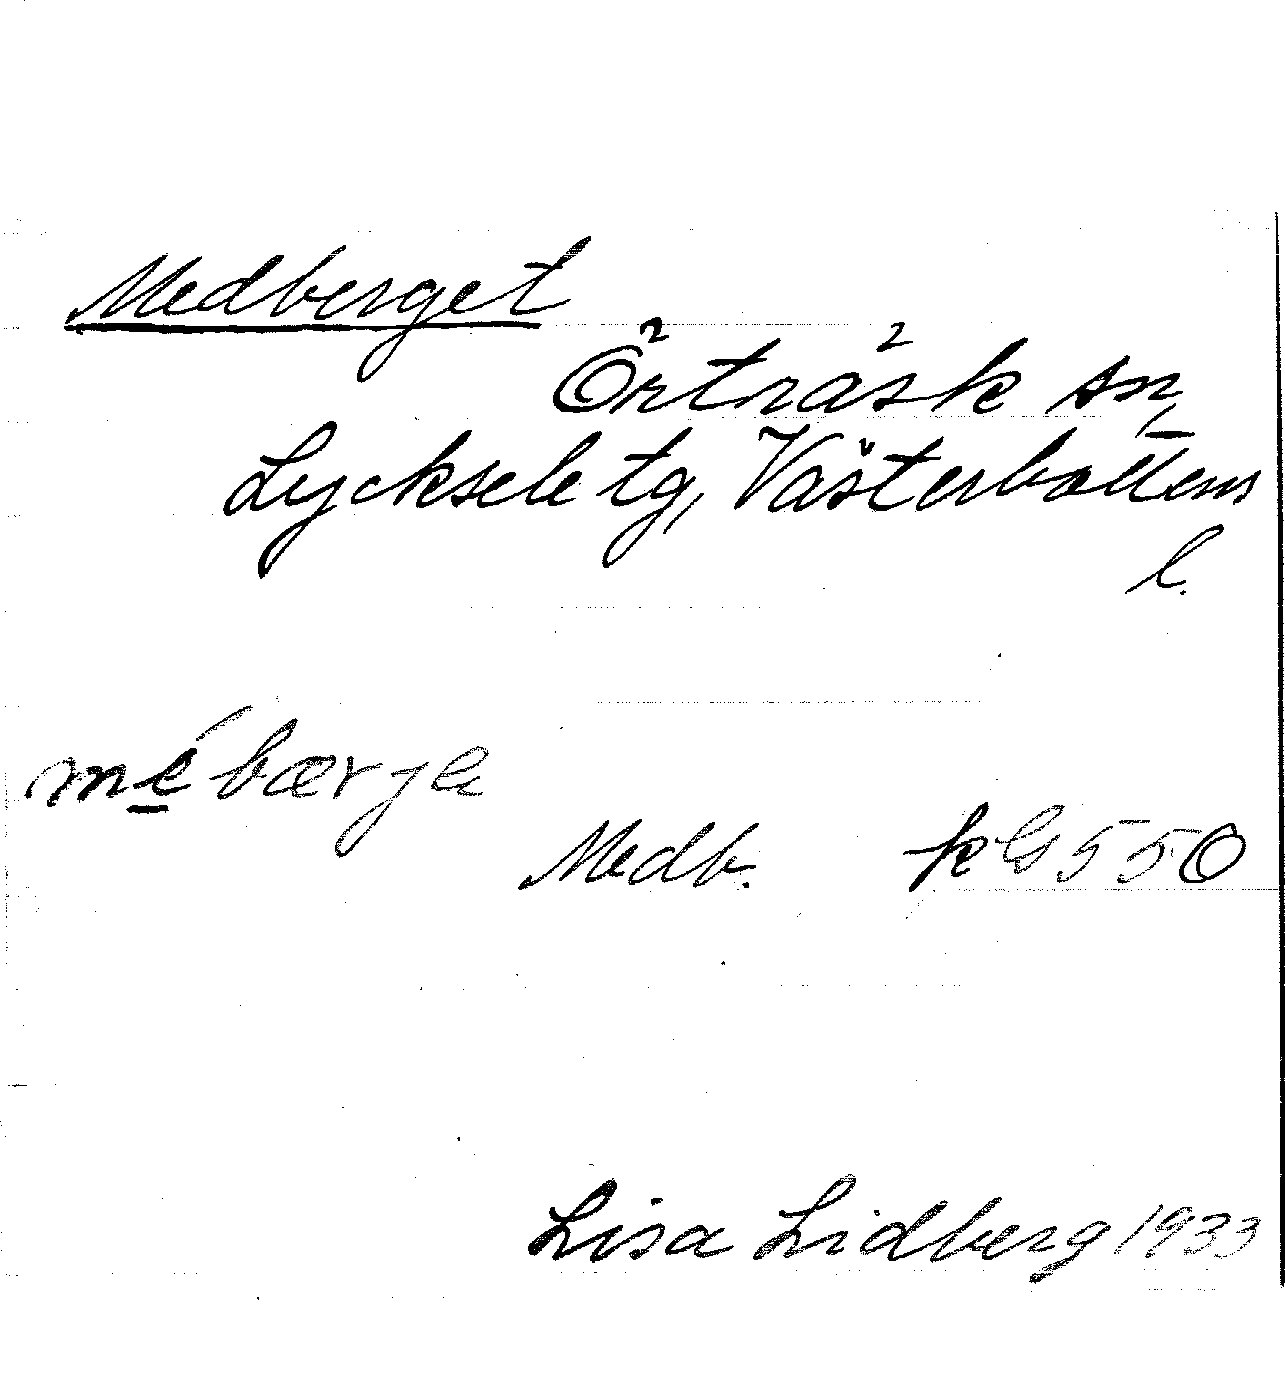 Medberget
Örträsk sn,
Lycksele tg, Västerbottens
l.
mé̱bærje
Medb. kG 550
Lisa Lidberg 1933